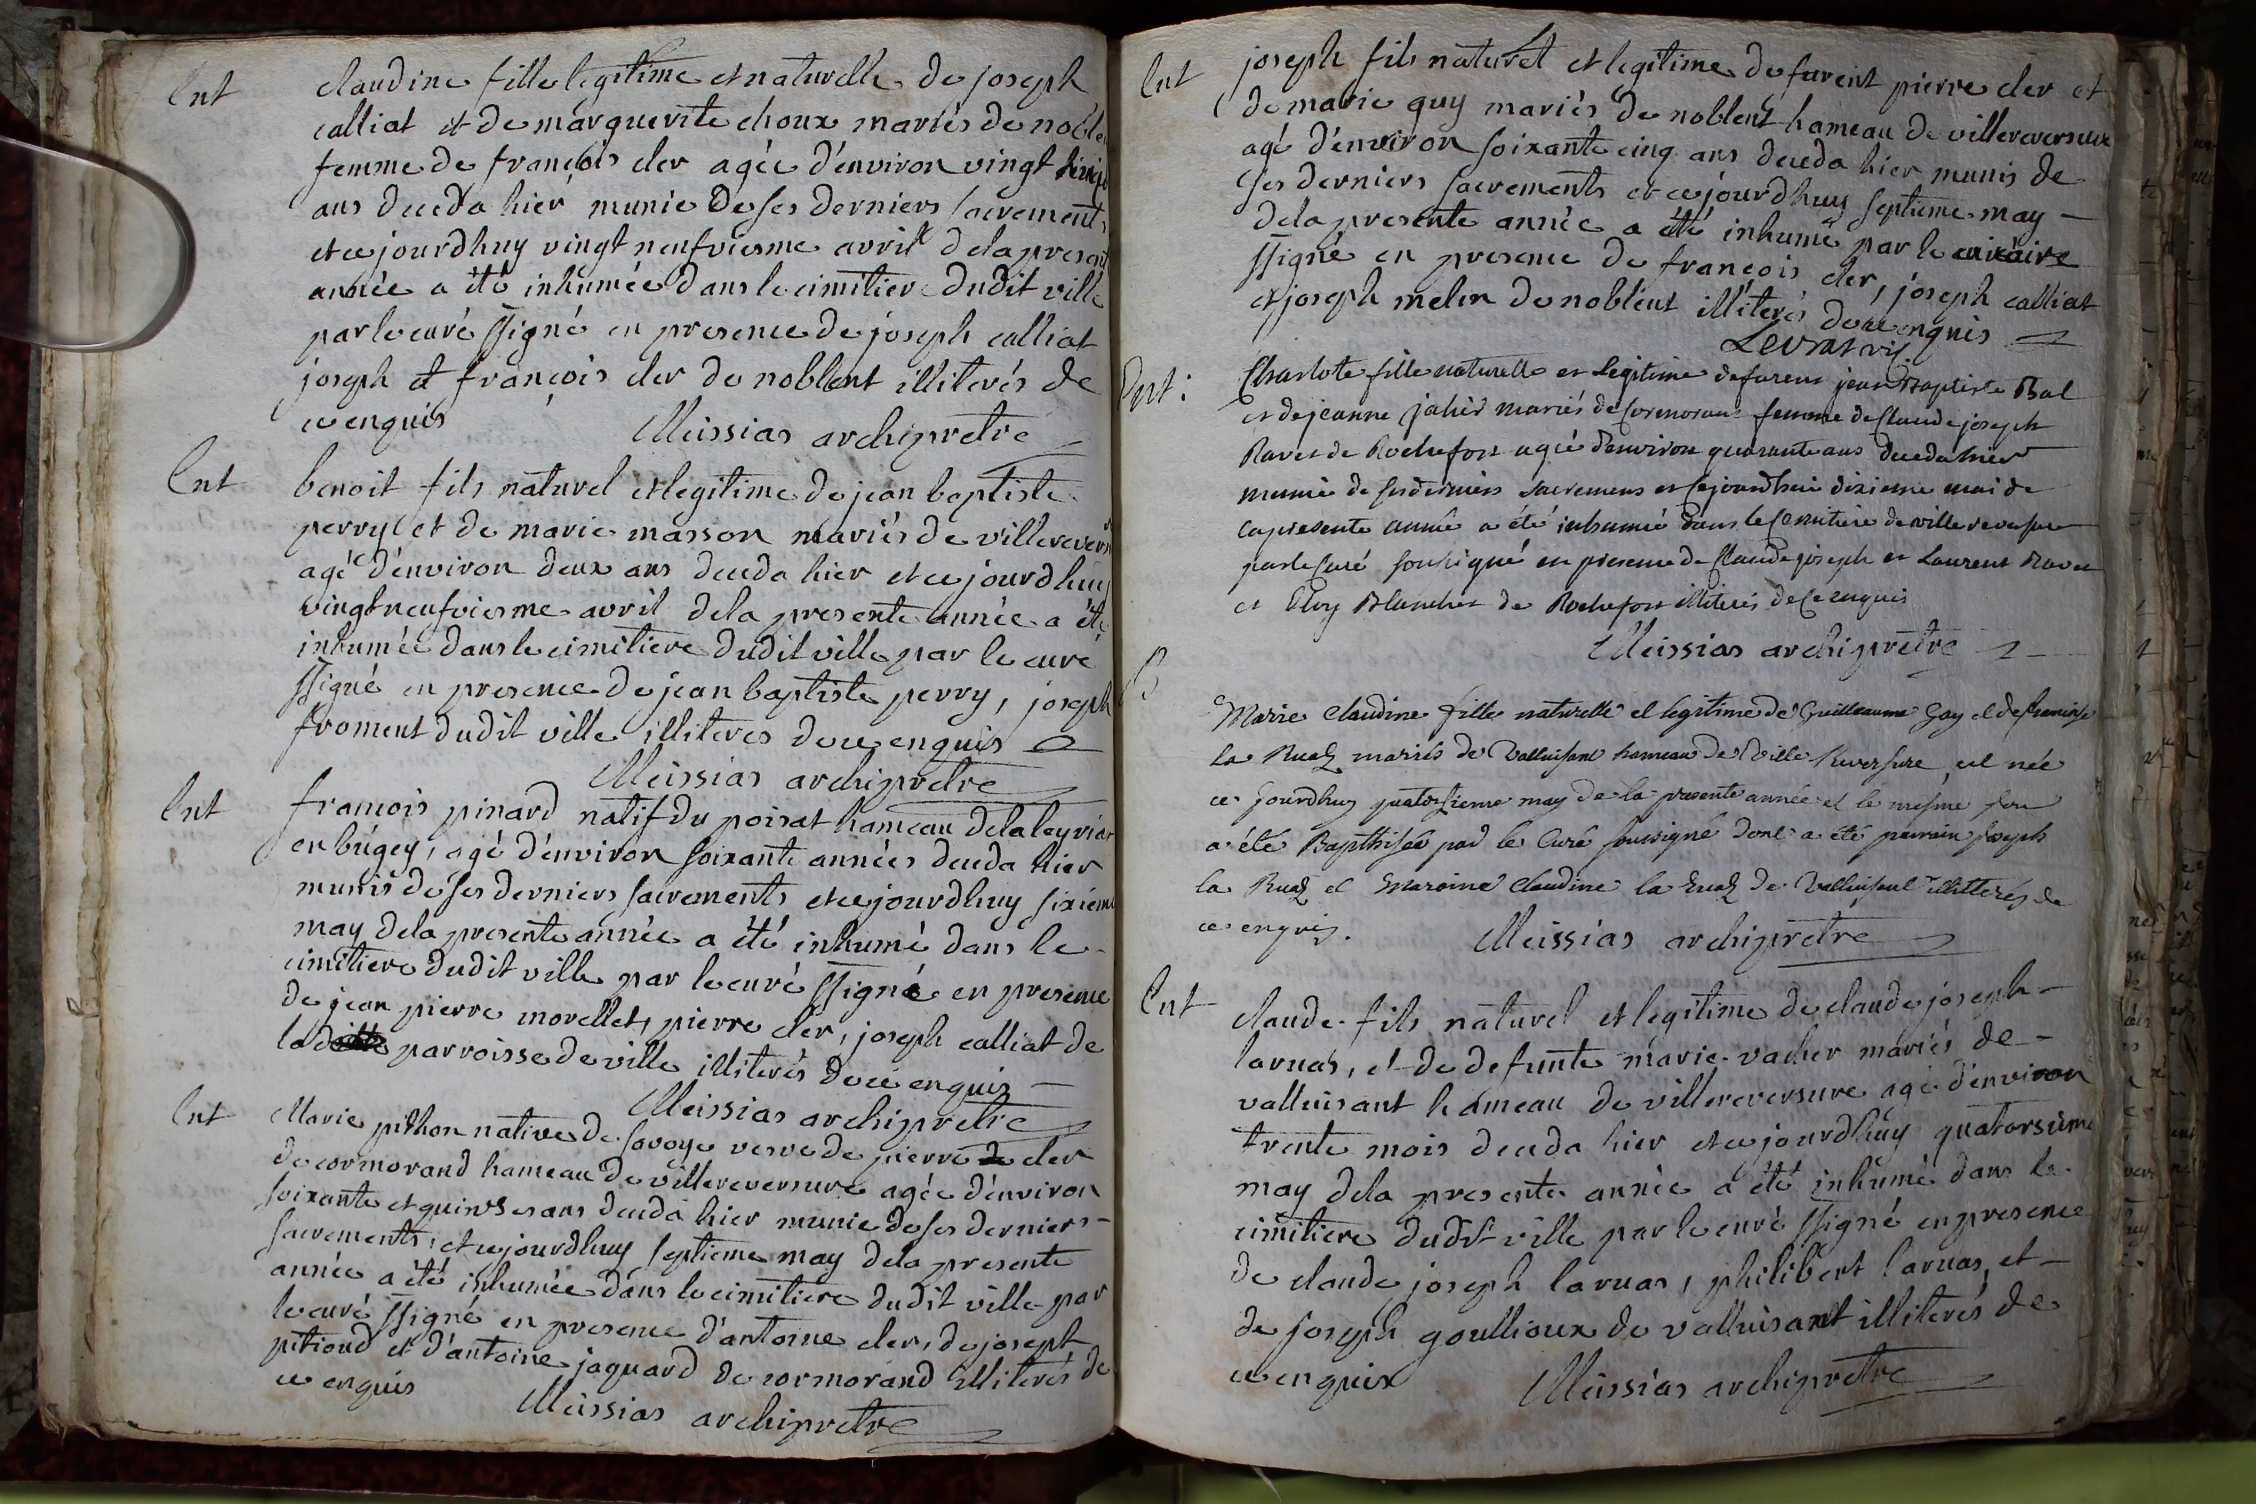 Ent
claudine fille legitime et naturelle de joseph
calliat et de marguerite choux mariés de noble
femme de françois cler agée d'environ vingt
ans deceda hier munie de ses derniers sacrements
et ce jourdhuy vingt neufviesme avril dela present
année a été inhumée dans le cimitiere dudit ville
par le curé ssigné en presence de joseph calliat
joseph et françois cler de noblent illiterés de
ce enquis
Meissias archipretre
Ent
benoit fils naturel et legitime de jean baptiste
perry et de marie masson mariés de villerevers
agé d'environ deux ans deceda hier et ce jourdhuy
vingt neufviesme avril dela presente année a été
inhumée dans le cimitiere dudit ville par le curé
ssigné en presence de jean baptiste perry, joseph
froment dudit ville illiteres de ce enquis
Meissias archipretre
Ent
francois pinard natif du poisat hameau dela leyriat
en bugey, agé d'environ soixante années deceda hier
munis de ses derniers sacrements et ce jourdhuy sixieme
may dela presente année a été inhumé dans le
cimitiere dudit ville par le curé ssigné en presence
de jean pierre morellet, pierre cler, joseph calliat de
la parroisse de ville illiterés de ce enquis
Meissias archipretre
Ent
Marie pithon native de savoye vesve de pierre de cler
de cormorand hameau de villereversure agée d'environ
soixante et quinse ans deceda hier munie de ses derniers
sacrements, et ce jourdhuy septieme may dela presente
année a été inhumée dans le cimitiere dudit ville par
le curé ssigné en presence d'antoine cler, de joseph
pitioud et d'antoine jaquard de cormorand illiterés de
ce enquis
Meissias archipretre
Ent
joseph fils naturel et legitime de furent pierre cler et
de marie guy mariés de noblent hameau de villereversure
agé d'environ soixante cinq ans deceda hier munis de
ses derniers sacrements et ce jourdhuy septieme may
dela presente année a été inhumé par le vicaire
ssigné en presence de françois cler, joseph calliat
et joseph melin de noblent illiterés de ce enquis
Levrat vic.
Ent:
Charlote fille naturelle et legitime defurent jean Baptiste Bal
et de jeanne jahir mariés de Cormorant femme de Claude joseph
Ravet de Rochefort agée d'environ quarante ans deceda hier
munie de ses derniers sacremens et cejourdhui dixieme mai de
la presente année a été inhumée dans le Cemitiere de villereversure
par le Curé soussigné en presence de Claude joseph et Laurent Ravet
et Eloy Blanchet de Rochefort illiterés de Ce enquis
Meissias archiprêtre
B
Marie Claudine fille naturelle et legitime de Guilleaume Gay et de françoise
la Ruaz mariés de Valluisant hameau de Ville Reversure, est née
ce jourdhuy quatorsieme may de la presente année et le mesme jour
a été Bapthisée par le Curé soussigné dont a été parrain joseph
la Ruaz et maraine Claudine la Ruaz de Valluisant illitterés de
ce enquis.
Meissias archiprêtre
Ent
claude fils naturel et legitime de claude joseph
laruas, et de defunte marie vacher mariés de
valluisant hameau de villereversure agé d'environ
trente mois deceda hier et ce jourdhuy quatorsieme
may dela presente année a été inhumé dans le
cimitiere dudit ville par le curé ssigné en presence
de claude joseph laruas, philibert laruas, et
de joseph goullioux de valluisant illiterés de
ce enquis
Meissias archipretre